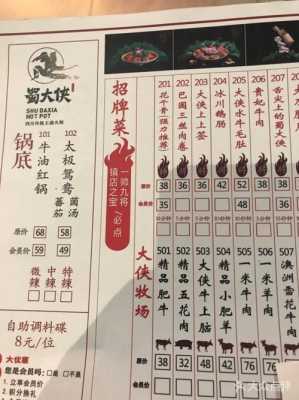 蜀大侠
SHU DAXIA
HOT POT
锅底
101 牛油红锅
102 太极鸳鸯 菌汤 番茄
原价 68 58
会员价 59 49
微辣 中辣 特辣
自助调料碟
8元/位
大优惠
您是会员吗?
1.立享会员价
2.积分换礼
招牌菜
一帅九将
镇店之宝/必点
201 花千骨
202 巴国三丝肉卷
203 大侠上上签
204 冰川鹅肠
205 大侠水牛毛肚
206 贵妃牛肉
207 舌尖上的蜀大侠
原价 38 38 36 36 52 38
会员价 35
48
大侠牧场
501 精品肥牛
502 精品五花肉
503 大侠牛上脑
504 精品小肥羊
505 一米牛肉
506 一米羊肉
507 澳洲雪花牛
38 32 48 38
大众点评